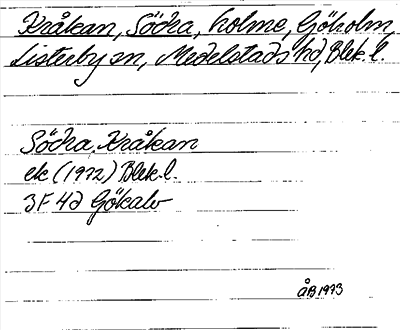 Kråkan, Södra, holme, Göholm,
Listerby sn, Medelstads hd, Blek. l.
Södra Kråkan
ek (1972) Blek. l.
3F 4d Gökalv
ÅB 1973